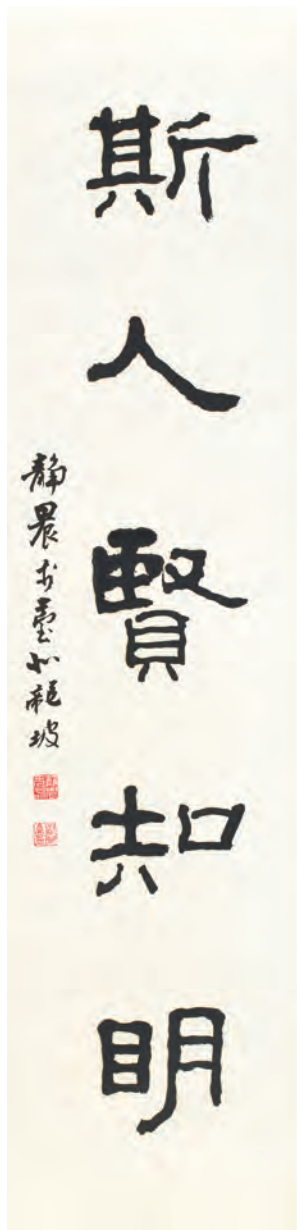 斯人賢知明
靜農於臺北龍坡